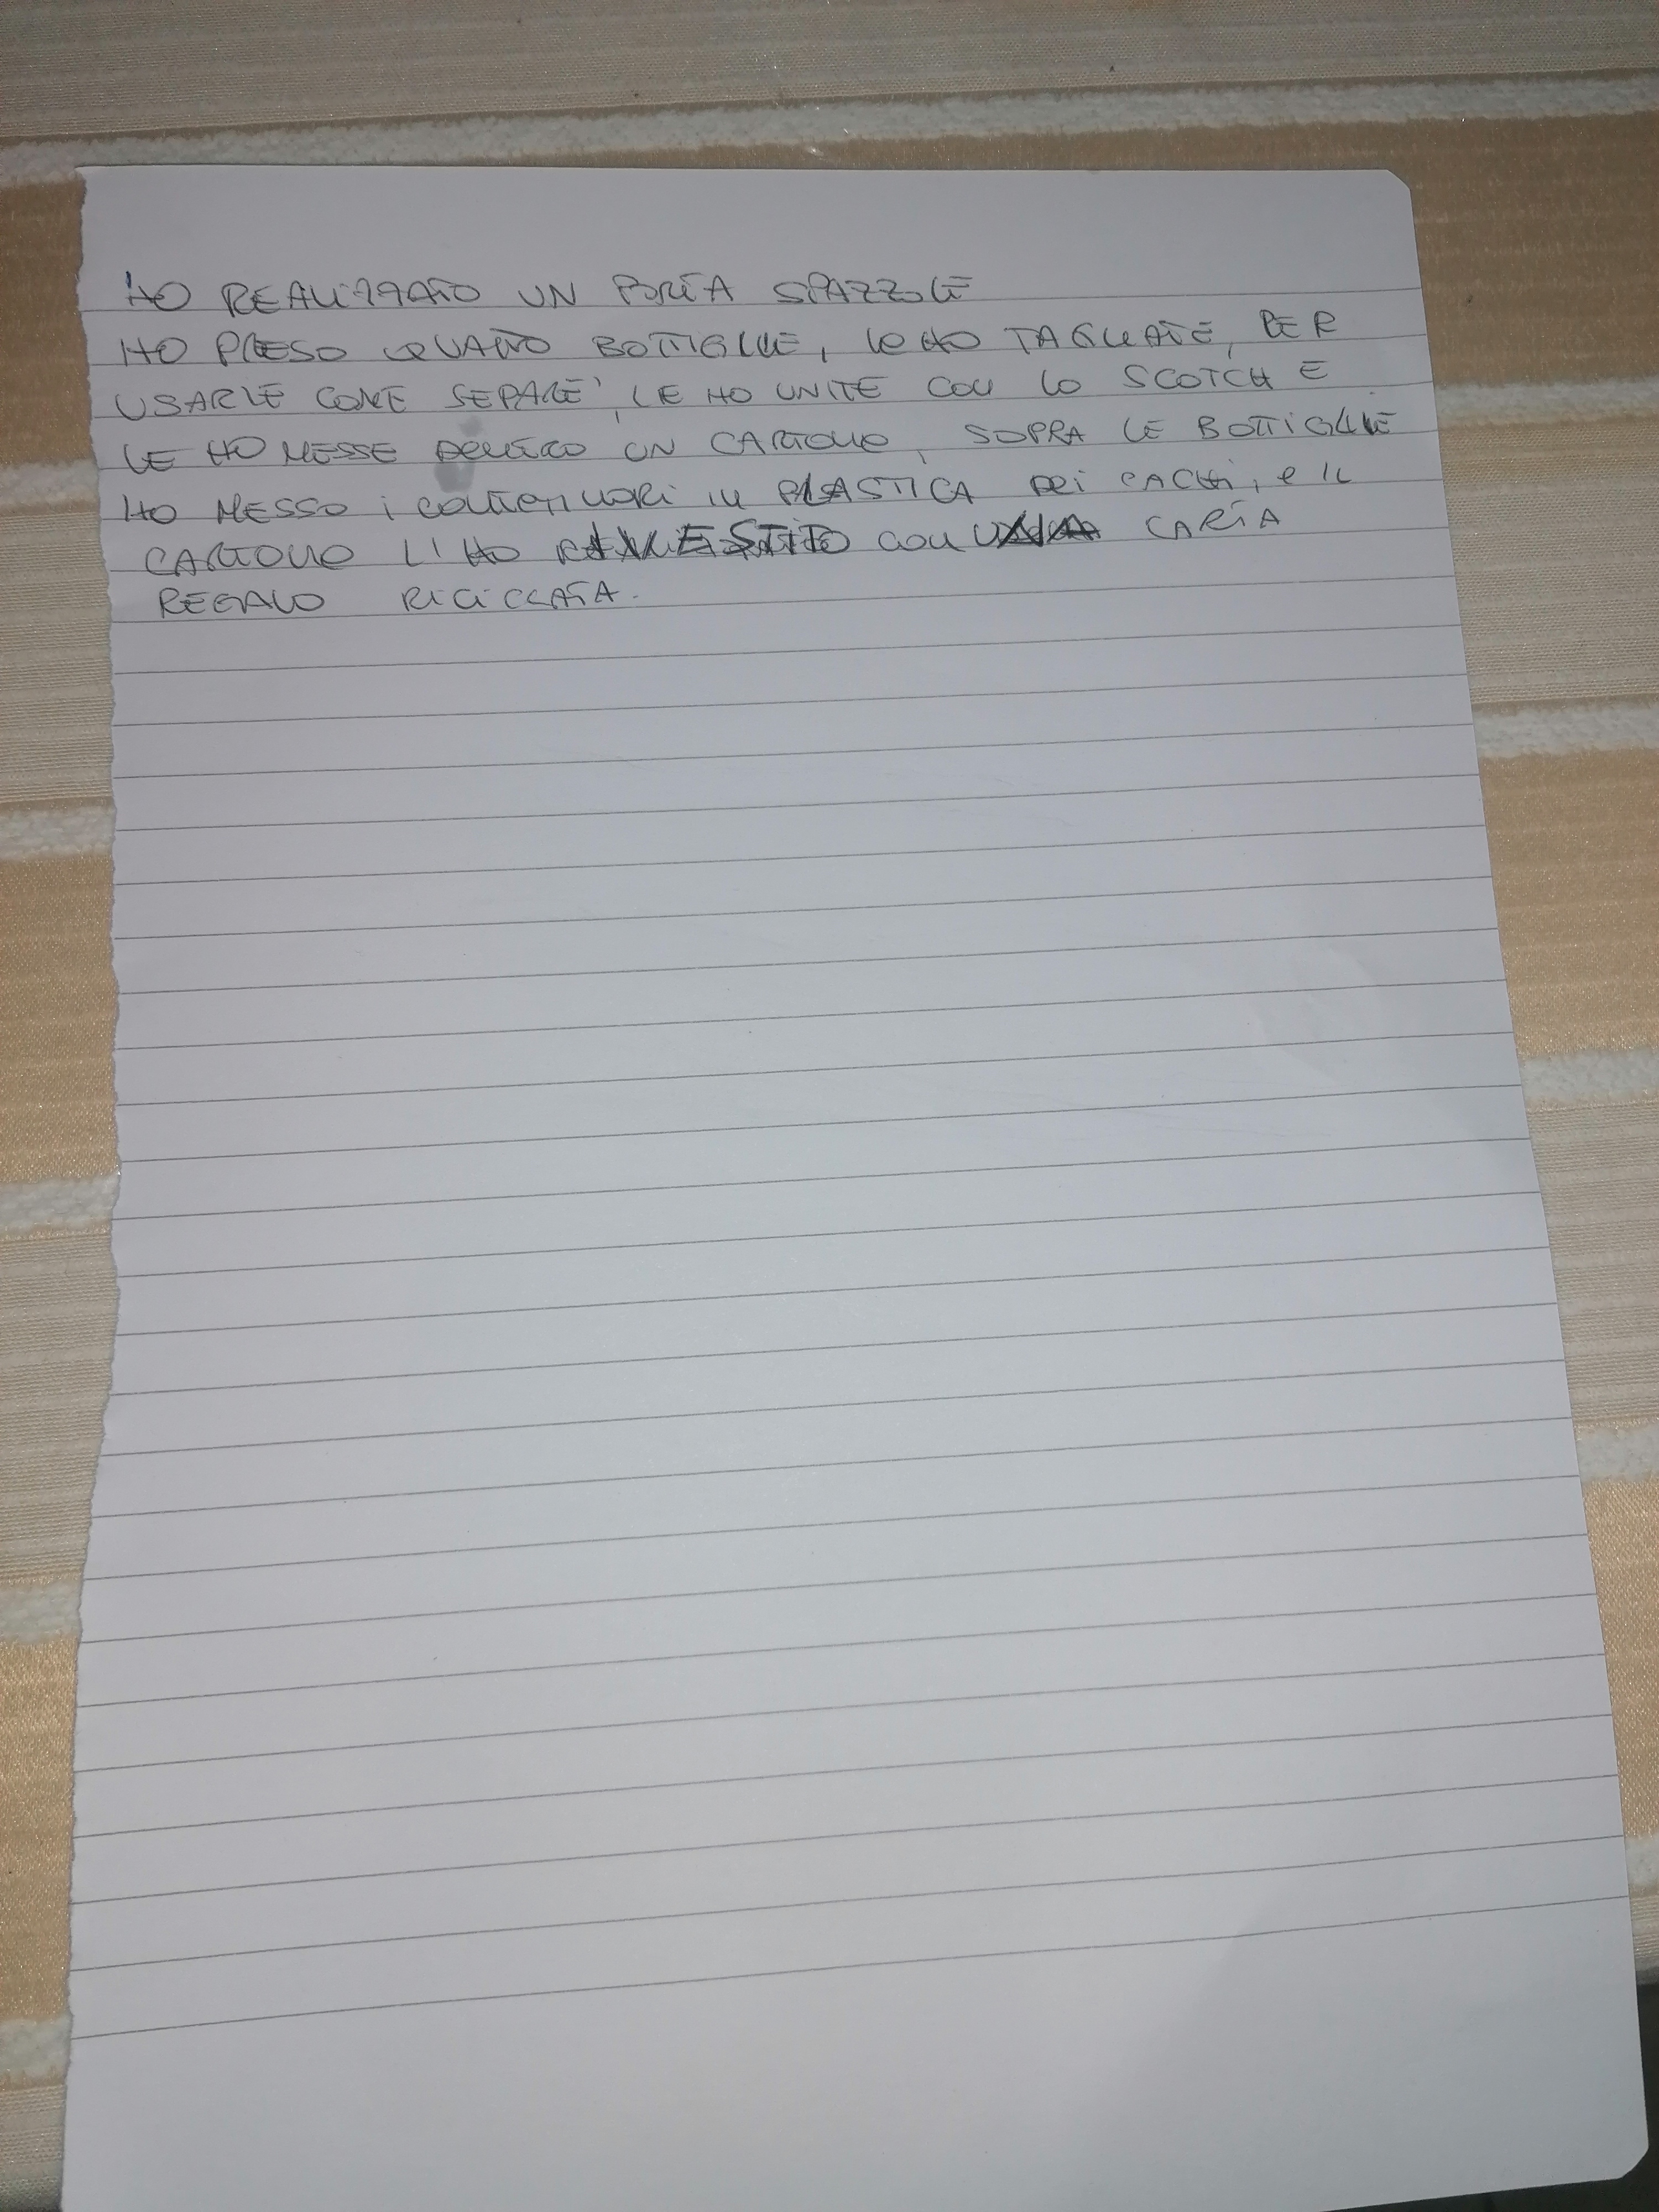 HO REALIZZATO UN PORTA SPAZZOLE
HO PRESO QUATTRO BOTTIGLIE, LE HO TAGLIATE, PER
USARLE COME SEPARE', LE HO UNITE CON LO SCOTCH E
LE HO MESSE DENTRO UN CARTONE, SOPRA LE BOTTIGLIE
HO MESSO i CONTENITORI IN PLASTICA DEI CACHI, e IL
CARTONE L'HO RIVESTITO CON CARTA
REGALO RICICLATA.